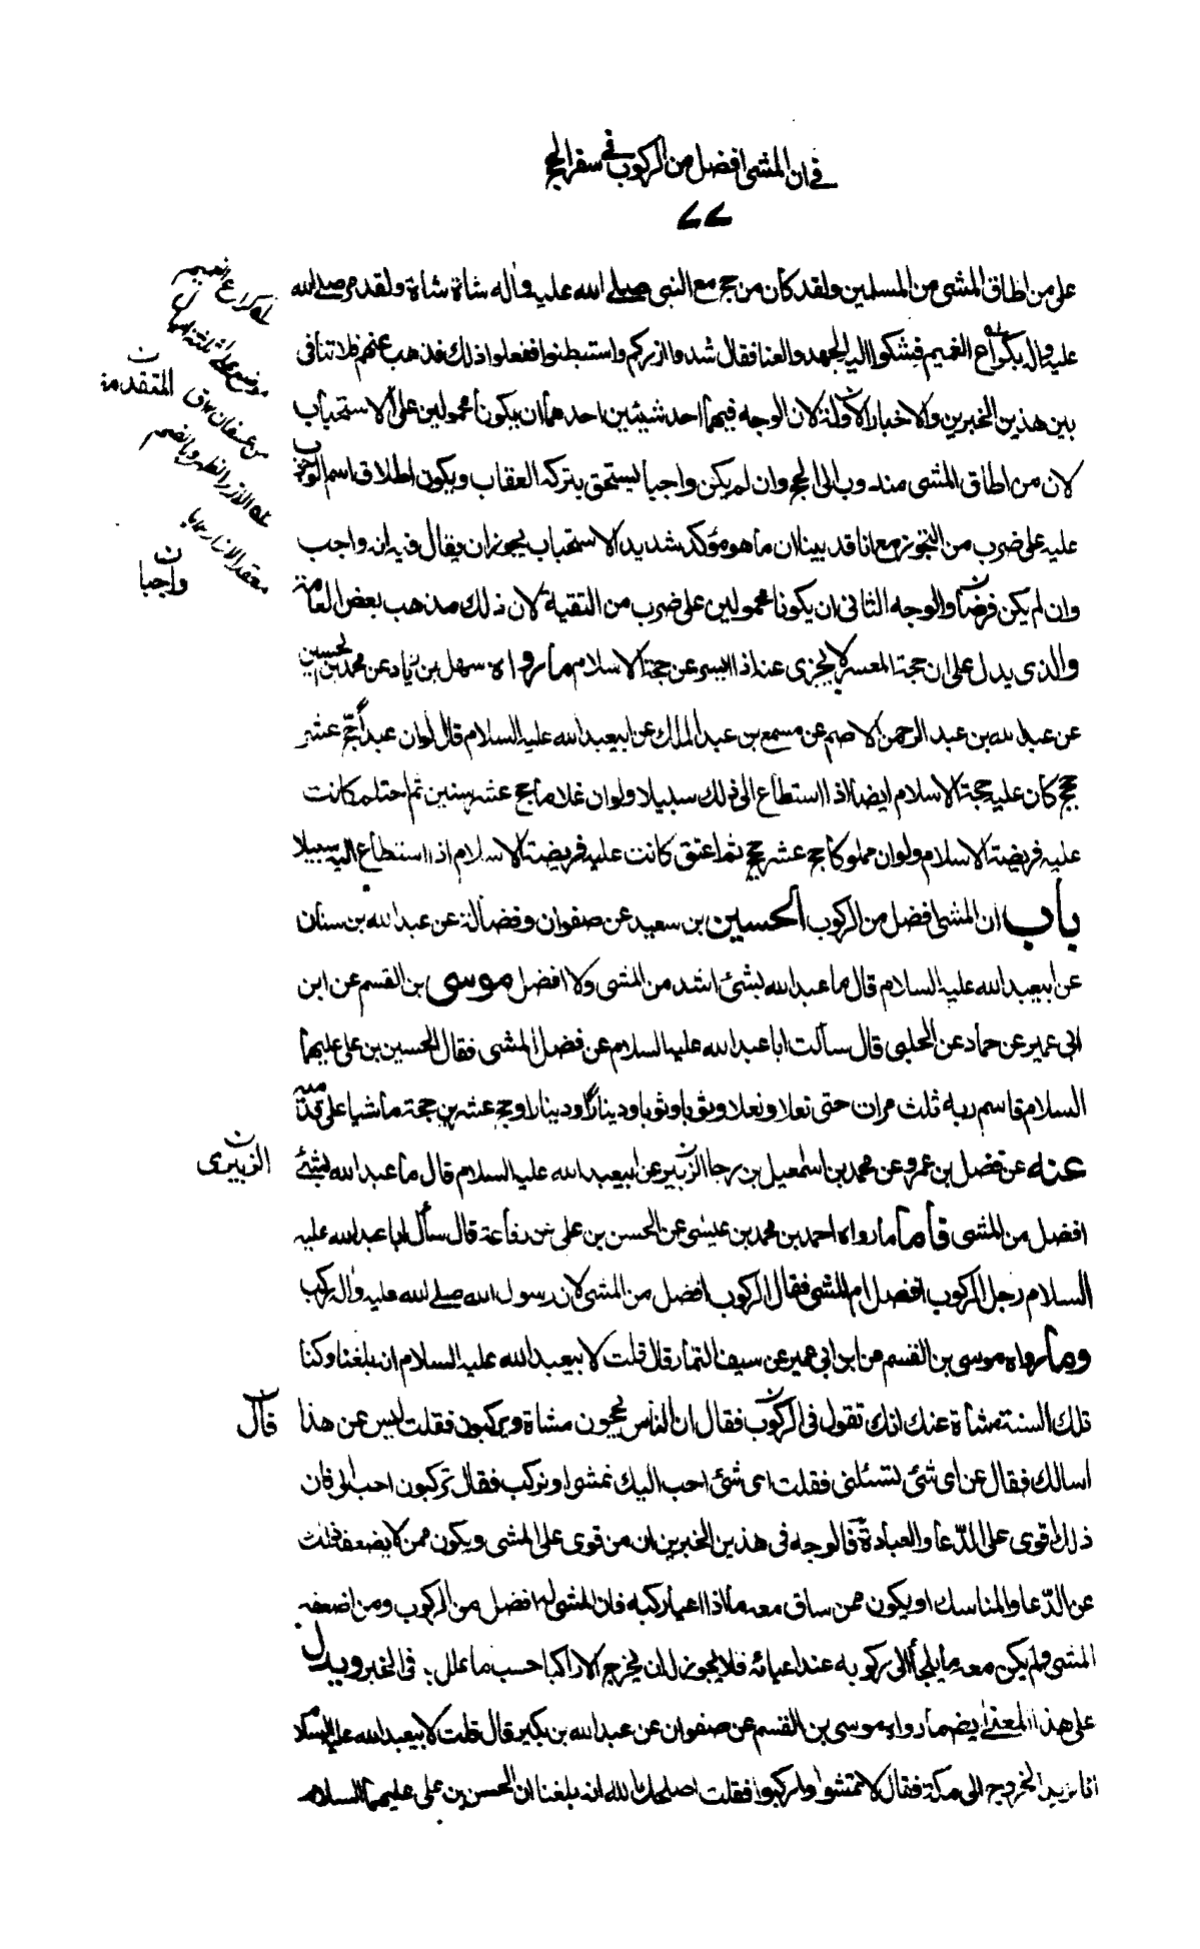 في ان المشي افضل من الركوب في سفر الحج
٧٧
على من اطاق المشي من المسلمين ولقد كان من حج مع النبي صلى الله عليه واله شاة شاة ولقد مر صلى الله
عليه واله بكراع الغميم فشكوا اليه الجهد والعنا فقال شدوا ازركم واستبطنوا ففعلوا ذلك فذهب عنهم فلا تنافي
بين هذين الخبرين والاخبار الاولة لان الوجه فيهما احد شيئين احدهما ان يكونا محمولين على الاستحباب
لان من اطاق المشي مندوب الى الحج وان لم يكن واجبا يستحق بتركه العقاب ويكون اطلاق اسم الوجوب
عليه على ضرب من التجوز مع انا قد بينا ان ما هو مؤكد شديد الاستحباب يجوز ان يقال فيه انه واجب
وان لم يكن فرضا والوجه الثاني ان يكونا محمولين على ضرب من التقية لان ذلك مذهب بعض العامة
والذي يدل على ان حجة المعسر لا يجزي عنه اذا ايسر عن حجة الاسلام ما رواه سهل بن زياد عن محمد بن الحسين
عن عبد الله بن عبد الرحمن الاصم عن مسمع بن عبد الملك عن ابيعبد الله عليه السلام قال لو ان عبداً حج عشر
حجج كان عليه حجة الاسلام ايضا اذا استطاع الى ذلك سبيلا ولو ان غلاما حج عشر سنين ثم احتلم كانت
عليه فريضة الاسلام ولو ان مملوكا حج عشر حجج ثم اعتق كانت عليه فريضة الاسلام اذا استطاع اليه سبيلا
باب ان المشي افضل من الركوب الحسين بن سعيد عن صفوان وفضالة عن عبد الله بن سنان
عن ابيعبد الله عليه السلام قال ما عبد الله بشئ اشد من المشي ولا افضل موسى بن القسم عن ابن
ابي عمير عن حماد عن الحلبي قال سألت ابا عبد الله عليه السلام عن فضل المشي فقال الحسين بن علي عليهما
السلام قاسم ربه ثلث مرات حتى نعلا ونعلا وثوبا وثوبا ودينارا ودينارا وحج عشرين حجة ماشيا على قدميه
عنه عن فضل بن عمرو عن محمد بن اسمعيل بن رجا الزبير عن ابيعبد الله عليه السلام قال ما عبد الله بشئ
افضل من المشي فأما ما رواه احمد بن محمد بن عيسى عن الحسن بن علي عن رفاعة قال سأل ابا عبد الله عليه
السلام رجل الركوب افضل ام المشي فقال الركوب افضل من المشي لان رسول الله صلى الله عليه واله ركب
وما رواه موسى بن القسم عن ابن ابي عمير عن سيف التمار قال قلت لابيعبد الله عليه السلام انه بلغنا وكنا
تلك السنة مشاة عنك انك تقول في الركوب فقال ان الناس يحجون مشاة ويركبون فقلت ليس عن هذا
اسالك فقال عن اي شئ تسئلني فقلت اي شئ احب اليك نمشوا ونركب فقال تركبون احب الي فان
ذلك اقوى على الدعا والعبادة فالوجه في هذين الخبرين ان من قوى على المشي ويكون ممن لا يضعفه ذلك
عن الدعا والمناسك او يكون ممن ساق معه ما اذا اعيا ركبه فان المشي له افضل من الركوب ومن اضعفه
المشي ولم يكن معه ما يلجأ الى ركوبه عند اعيائه فلا يجوز له ان يخرج الا راكبا حسب ما علل به في الخبر ويدل
على هذا المعنى ايضا ما رواه موسى بن القسم عن صفوان عن عبد الله بن بكير قال قلت لابيعبد الله عليه السلام
انا نريد الخروج الى مكة فقال لا تمشوا واركبوا فقلت اصلحك الله انه بلغنا ان الحسن بن علي عليهما السلام
كراع الغميم
موضع على ثلثة اميال
من عسفان
المتقدمة ن
الازر الظهر وبالضم
معقد الازار
واجبا ن
الزبيري ن
قال ن